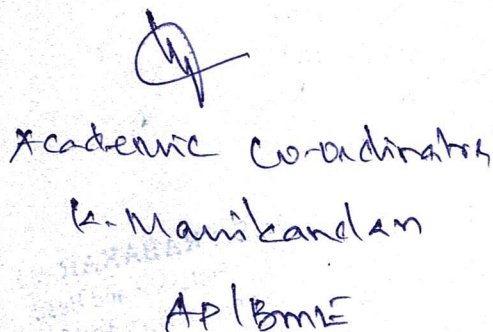 Academic Co-ordinator
K. Manikandan
AP/BME